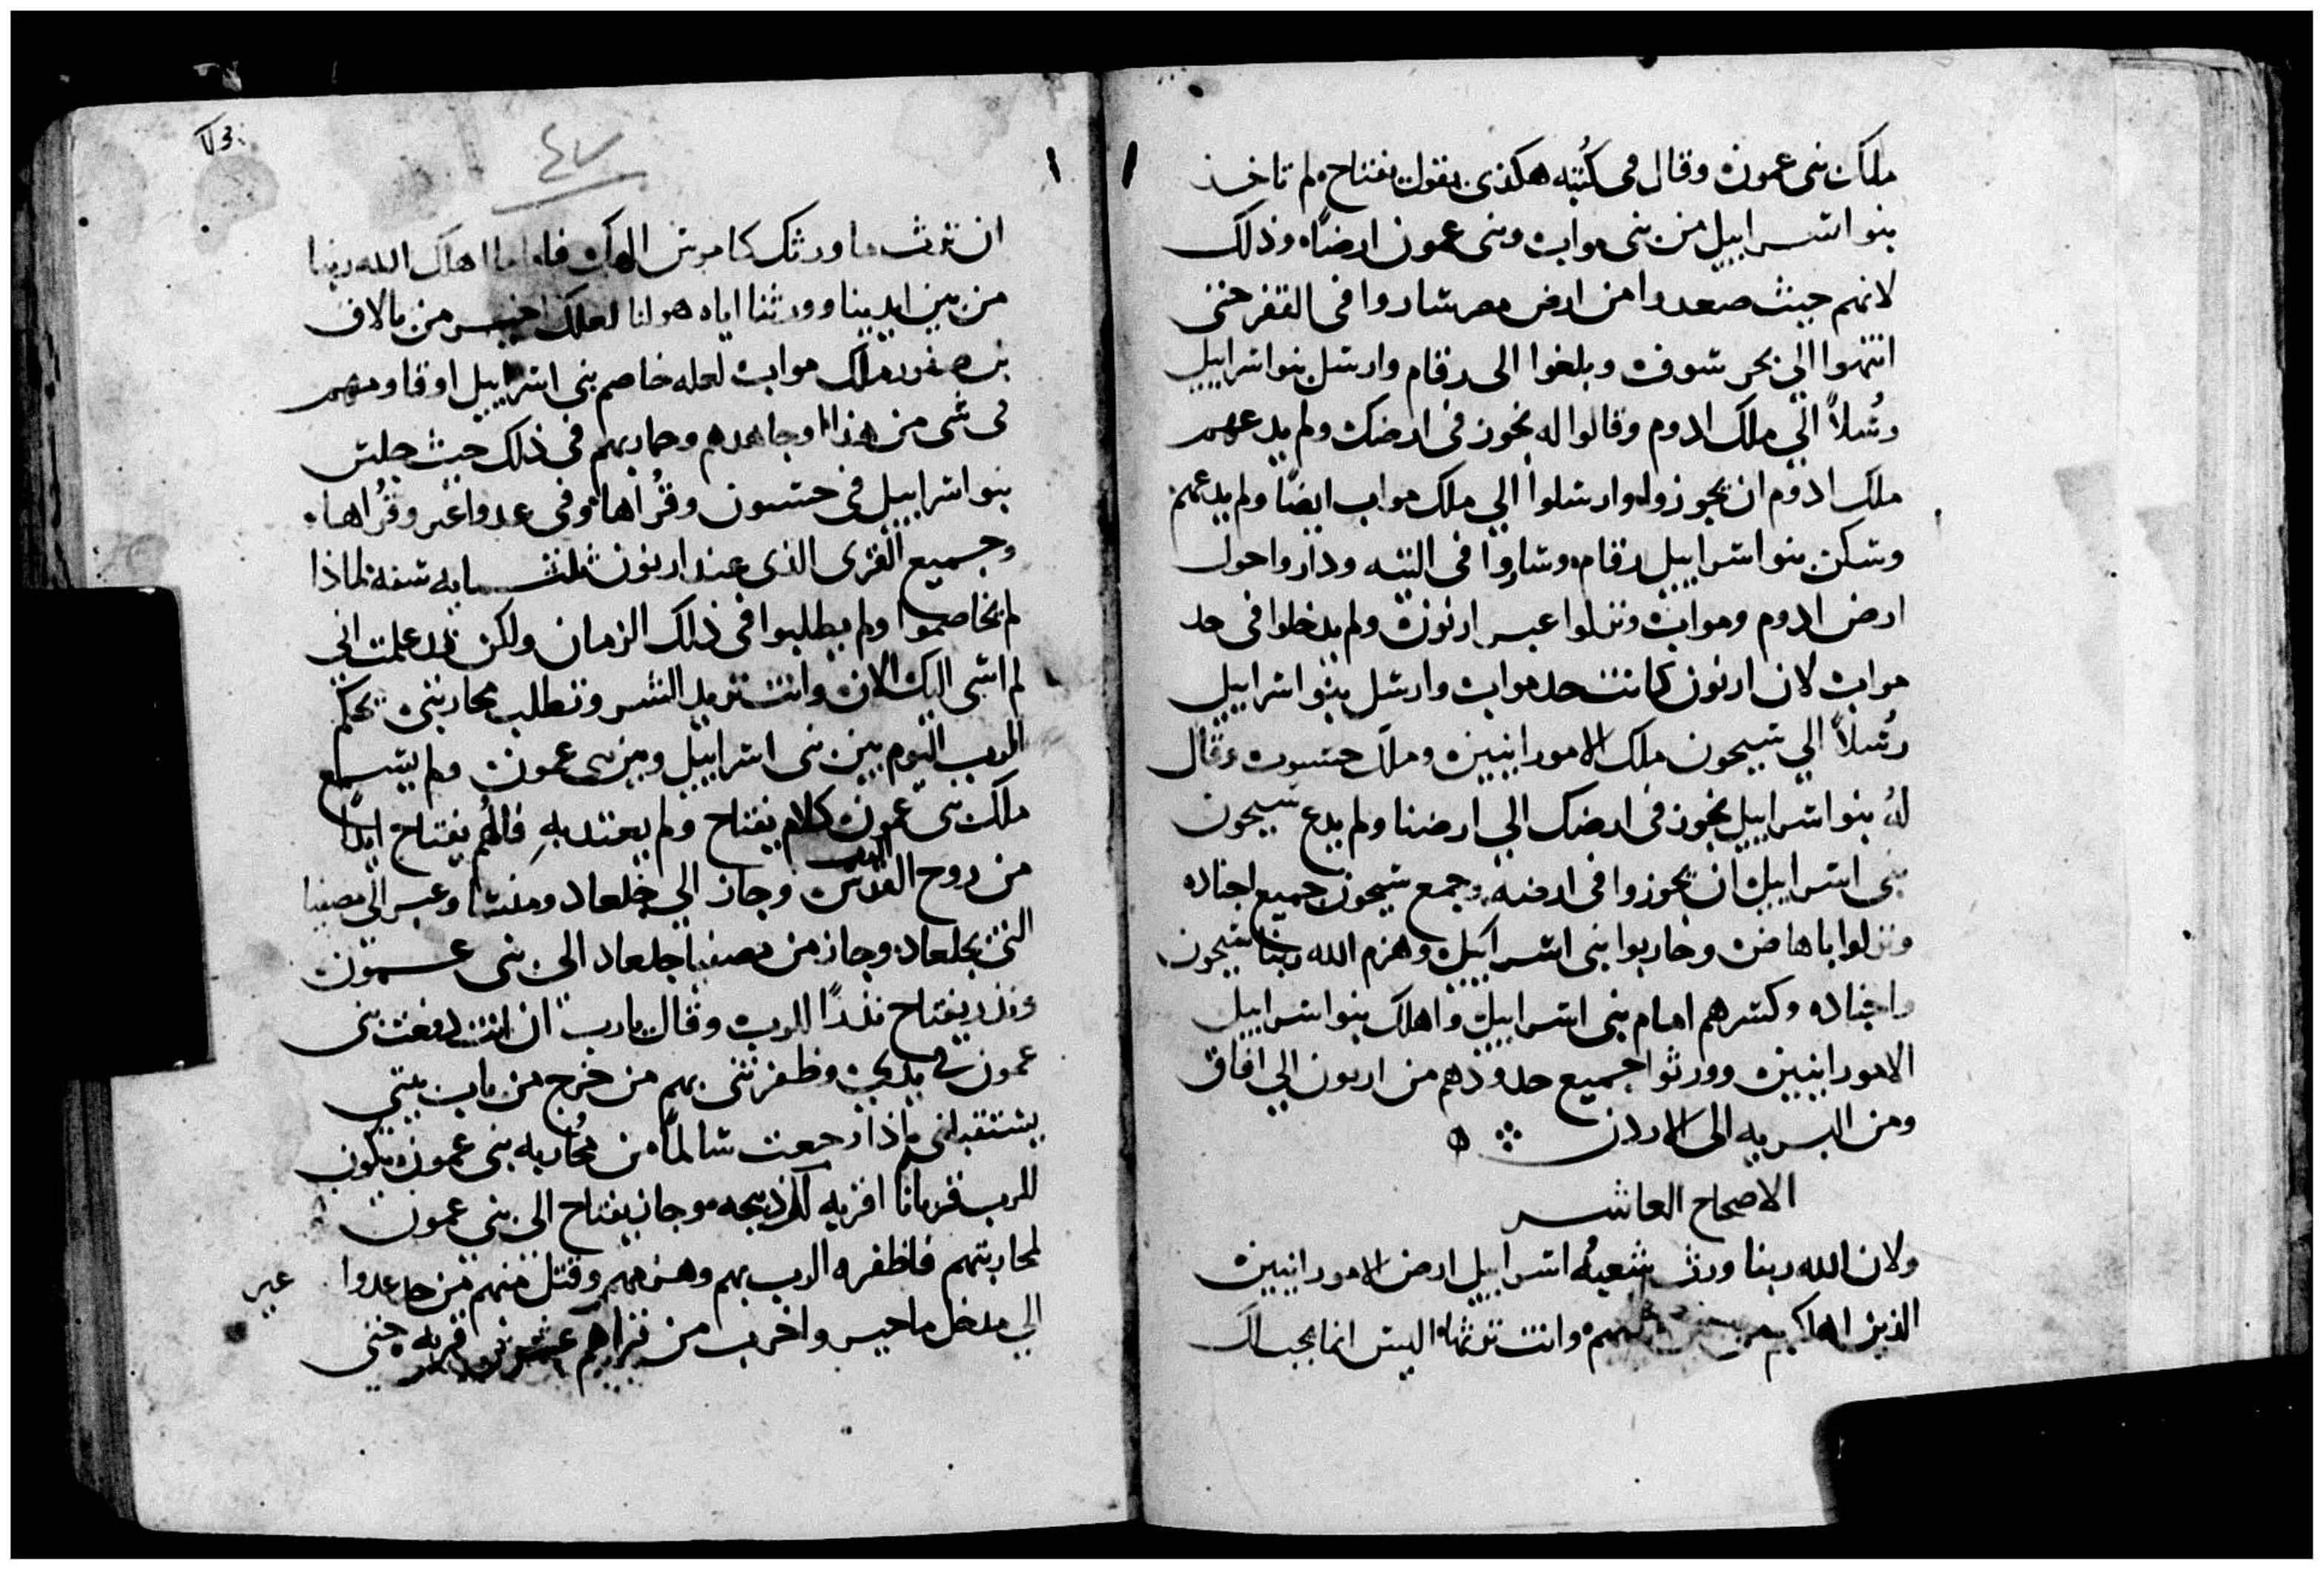 ملك بنى عمون وقال فى كتبه هكذى يقول يفتاح لم تاخذ
بنو اسراييل من بنى مواب وبنى عمون ارضًا وذلك
لانهم حيث صعدوا من ارض مصر ساروا فى القفر حتى
انتهوا الي بحر سوف وبلغوا الى رقام وارسل بنو اسراييل
رُسلاً الي ملك ادوم وقالوا له نجوز فى ارضك ولم يدعهم
ملك ادوم ان يجوزوا وارسلوا الي ملك مواب ايضًا ولم يدعهم
وسكن بنو اسراييل رقام وساروا فى التيه وداروا حول
ارض ادوم ومواب ونزلوا عبر ارنون ولم يدخلوا فى حد
مواب لان ارنون كانت حد مواب وارسل بنو اسراييل
رُسلاً الي سيحون ملك الامورانيين وملك حسبون وقال
لهُ بنو اسراييل نجوز فى ارضك الي ارضنا ولم يدع سيحون
بنى اسراييل ان يجوزوا فى ارضه وجمع سيحون جميع اجناده
ونزلوا ياهاض وحاربوا بنى اسراييل وهزم الله ربنا سيحون
واجناده وكسرهم امام بنى اسراييل واهلك بنو اسراييل
الامورانيين وورثوا جميع حدودهم من ارنون الي افاق
ومن البريه الى الاردن
الاصحاح العاشر
ولان الله ربنا ورث شعبهُ اسراييل ارض الامورانيين
الذين اهلكهم من وانت ترثها اليس انما يجب لك
٧٣
٤٧
ان ترث ما ورثك كاموش الهك فاما ما اهلك الله ربنا
من بين ايدينا وورثنا اياه هو لنا لعلك اخير من بالاق
بن صفور ملك مواب لعله خاصم بنى اسراييل او قاومهم
فى شى من هذا او جاهدهم وحاربهم فى ذلك حيث جلس
بنو اسراييل فى حسبون وقُراها وفى عدواعير وقُراها
وجميع القرى الذى عند ارنون ثلثمايه سنه لماذا
لم تخاصموا ولم يطلبوا فى ذلك الزمان ولكن قد علمت انى
لم اسى اليك الان وانت تريد الشر وتطلب محاربتى يحكم
الرب اليوم بين بنى اسراييل وبين بنى عمون ولم يسمع
ملك بنى عمون كلام يفتاح ولم يعتد بهِ فالهُم يفتاح ايدًا
من روح القدس وجاز الي جلعاد ومنسا وعبر الي مصفيا
التى بجلعاد وجاز من مصفيا جلعاد الى بنى عمون
ونذر يفتاح نذرًا للرب وقال يارب ان انت دفعت بنى
عمون فى يدي وظفرتنى بهم من خرج من باب بيتى
يستقبلنى اذا رجعت سالمًا من مُحاربه بنى عمون يكون
للرب قربانا اقربه لك ذبيحه وجاز يفتاح الى بنى عمون
لمحاربتهم فاظفره الرب بهم وهزمهم وقتل منهم من حد عدوا عير
الي مدخل ماحير واخرب من قراهم عشرون قريه حتى